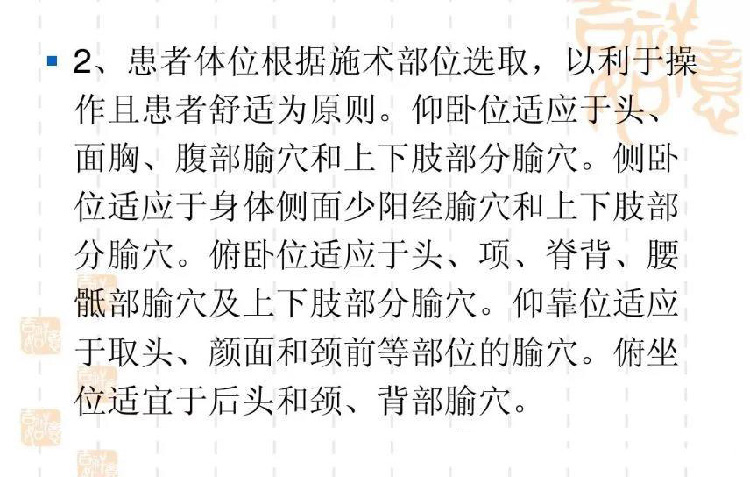 2、患者体位根据施术部位选取，以利于操
作且患者舒适为原则。仰卧位适应于头、
面胸、腹部腧穴和上下肢部分腧穴。侧卧
位适应于身体侧面少阳经腧穴和上下肢部
分腧穴。俯卧位适应于头、项、脊背、腰
骶部腧穴及上下肢部分腧穴。仰靠位适应
于取头、颜面和颈前等部位的腧穴。俯坐
位适宜于后头和颈、背部腧穴。